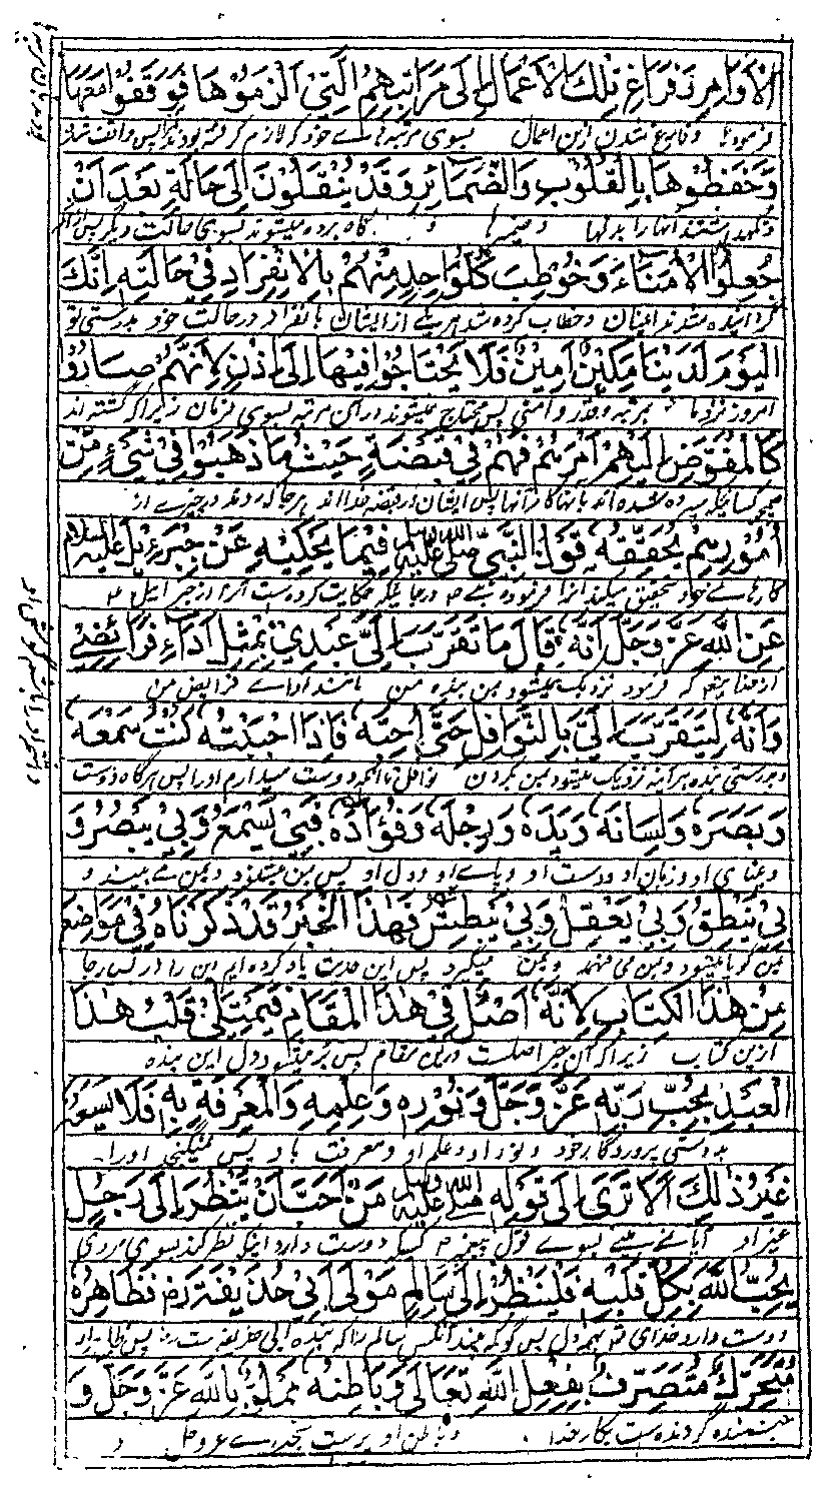 الاوامر وفراغ تلك الاعمال الى مراتبهم التي الزموها فوقفوا معها
فرمودها و فارغ شدن ازین اعمال بسوی مرتبه هاے خود که لازم کرفته بودند پس واقف شدند
وحفظوها بالقلوب والضمائر وقد ينقلون الى حالة بعد ان
و نکهداشتند آنها را بدلها و ضمیرها و گاه برده میشوند بسوی حالت دیگر پس از آنکه
جعلوا الامناء وخوطب كل واحد منهم بالانفراد في حالته انك
گردانیده شدند امینان و خطاب کرده شد هر یکے از ایشان بانفراد در حالت خود بدرستی تو
اليوم لدينا مكين امين فلا يحتاجوا فيها الى اذن لانهم صاروا
امروز نزد ما بمرتبه و قدر و امنی پس محتاج نمیشوند در آن مرتبه بسوی فرمان زیراکه گشته اند
كالمفوض اليهم امرهم فهم في قبضة حيث ما ذهبوا في شيء من
کسانیکه سپرده شده اند بآنها کار آنها پس ایشان در قبضه خدا اند هر جا که روند در چیزے از
امورهم يحققه قول النبي صلى الله عليه وسلم فيما يحكيه عن جبرئيل عليه السلام
کارهاے خود تحقیق میکند اینرا فرموده نبی ص در جائیکه حکایت کرده است آنرا از جبرائیل ع م
عن الله عز وجل انه قال ما تقرب الي عبدي بمثل اداء فرائضي
از خدا که فرمود نزدیک نمیشود بمن بنده من مانند اداے فرایض من
وانه ليتقرب الي بالنوافل حتى احبه فاذا احببته كنت سمعه
و بدرستی بنده هر آئنه نزدیک میشود بمن بکردن نوافل تا آنکه دوست میدارم او را پس هرگاه دوست
وبصره ولسانه ويده ورجله وفؤاده فبي يسمع وبي يبصر و
و بینای او و زبان او و دست او و پاے او و دل او پس بمن میشنود و بمن مے بیند و
بي ينطق وبي يعقل وبي يبطش فهذا الخبر قد ذكرناه في مواضع
بمن گویا میشود و بمن می فهمد و بمن میگیرد پس این حدیث یاد کرده ایم این را در بس جا
من هذا الكتاب لانه اصل في هذا المقام فيمتلئ قلب هذا
ازین کتاب زیرا که آن خبر اصلست درین مقام پس پر میشود دل این بنده
العبد بحب ربه عز وجل ونوره وعلمه والمعرفة به فلا يسعه
بدوستی پروردگار خود و نور او و علم او و معرفت باو پس نمیگنجد او را
غير ذلك الا ترى الى قوله صلى الله عليه وسلم من احب ان ينظر الى رجل
غیر او آیا نے بینی بسوے قول پیغمبر ص کسیکه دوست دارد اینکه نظر کند بسوی مردی
يحب الله بكل قلبه فلينظر الى سالم مولى ابي حذيفة رض فظاهره
دوست دارد خدای را بهمه دل پس گو که بیند آنکس سالم را که بنده ابی حذیفه است رض پس ظاهر او
متحرك متصرف بفعل الله تعالى وباطنه مملو بالله عز وجل و
جنبنده گردنده است بکار خدا و باطن او پرست بخداے عزوجل و